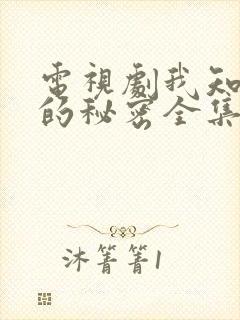 電視劇我知
的秘密全集
沐箐箐1